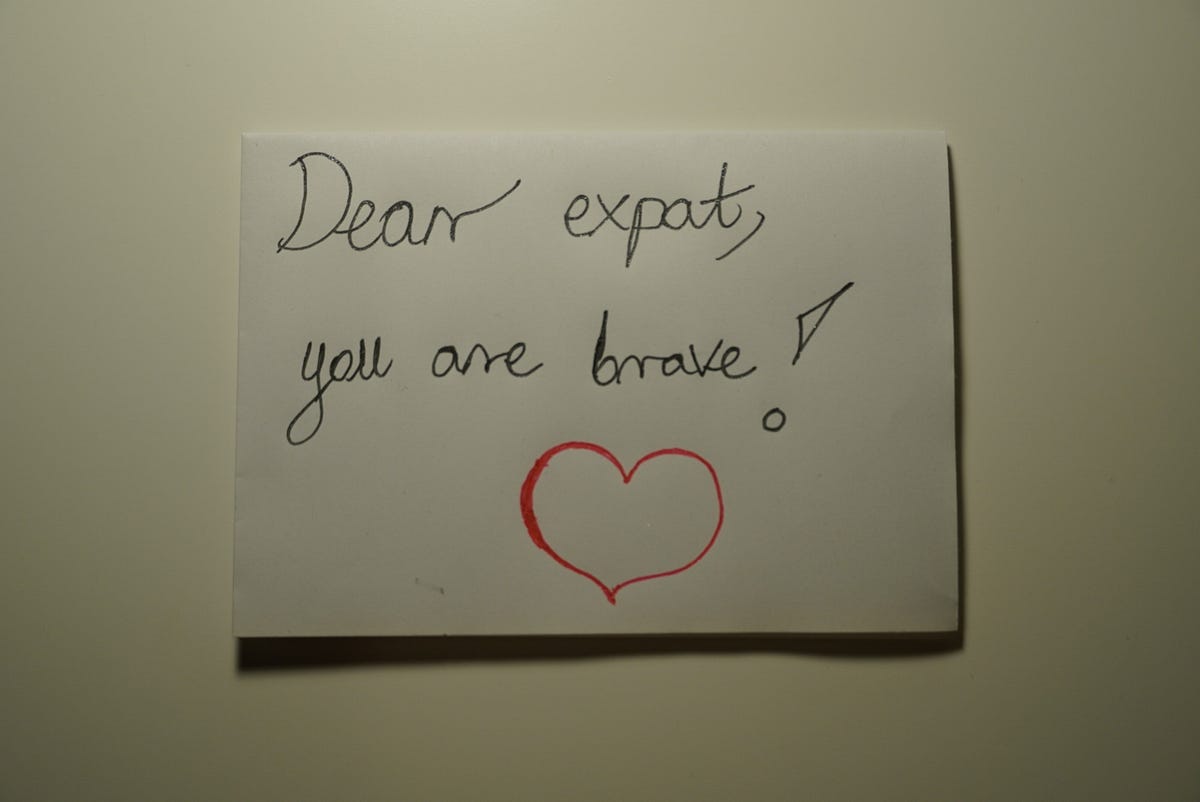 Dear expat,
you are brave!